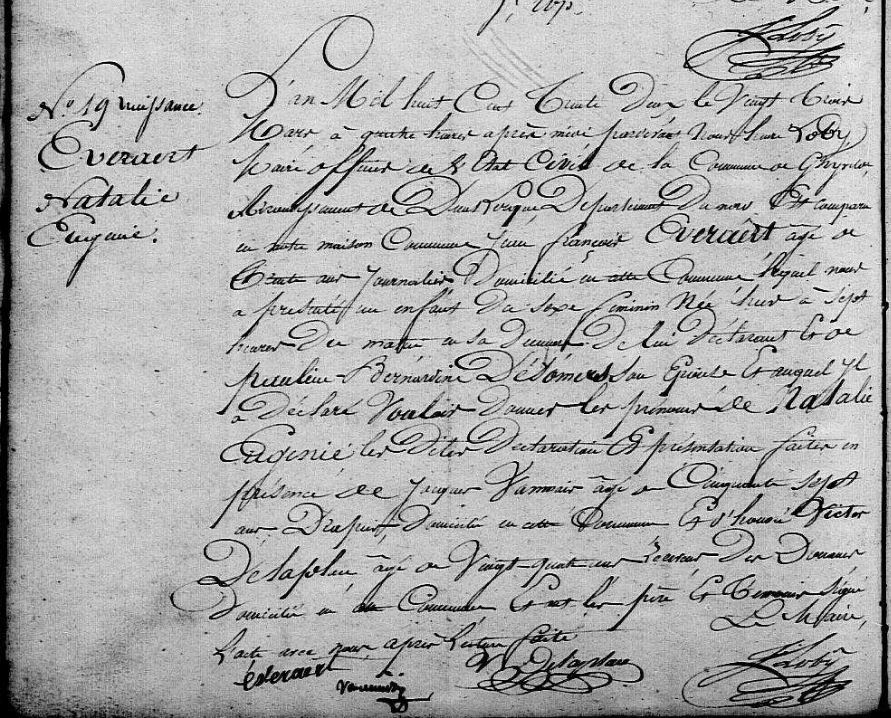 J Loby
N.o 19 naissance
Everaert
Natalie
Eugenie.
L'an Mil huit Cent Trente Deux le Vingt Trois
Mars à quatre heures après midi pardevant Nous
Loby
Maire officier de l'Etat Civil de la Commune de Ghyvelde
Arrondissement de Dunkerque, Département du nord Est comparu
en notre maison Commune Jean françois Everaert âgé de
Trente ans Journalier Domicilié en cette Commune lequel nous
a présenté un enfant du sexe féminin Née hier à Sept
heures Du matin en sa Demeure De lui Déclarant Et de
pauline Bernardine Désomers son Epouse Et auquel Il
a Déclaré Vouloir Donner les prénoms de Natalie
Eugenie les Dites Declaration Et présentation faites en
présence de Jacques âgé de Cinquante Sept
ans Domicilié en cette Commune Et d'honoré Victor
Delaplace âgé de Vingt quatre ans Des Douanes
Domicilié en cette Commune Et ont les père Et Témoins Signé
L'acte avec nous après Lecture faite
Le Maire,
everaert
V. Delaplace
J Loby